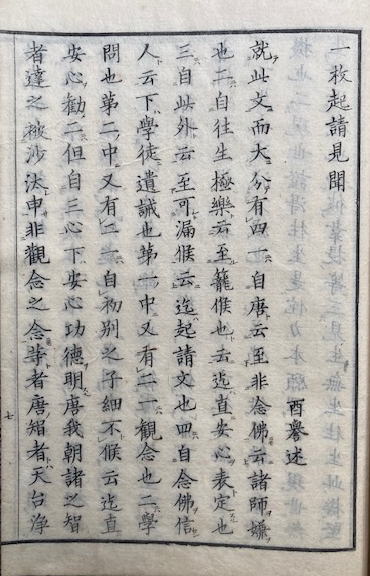 一枚起請見聞
酉譽述
就此文而大分有四一自唐云至非念佛云諸師嫌
也二自往生極樂云至籠候也云迄直安心表定也
三自此外云至可漏候云迄起請文也四自念佛信
人云下學徒遺誡也第一中又有二一觀念也二學
問也第二中又有二一自初別之子細不候云迄直
安心勸二但自三心下安心功德明唐我朝諸之智
者達之被沙汰申非觀念之念等者唐智者天台淨
七